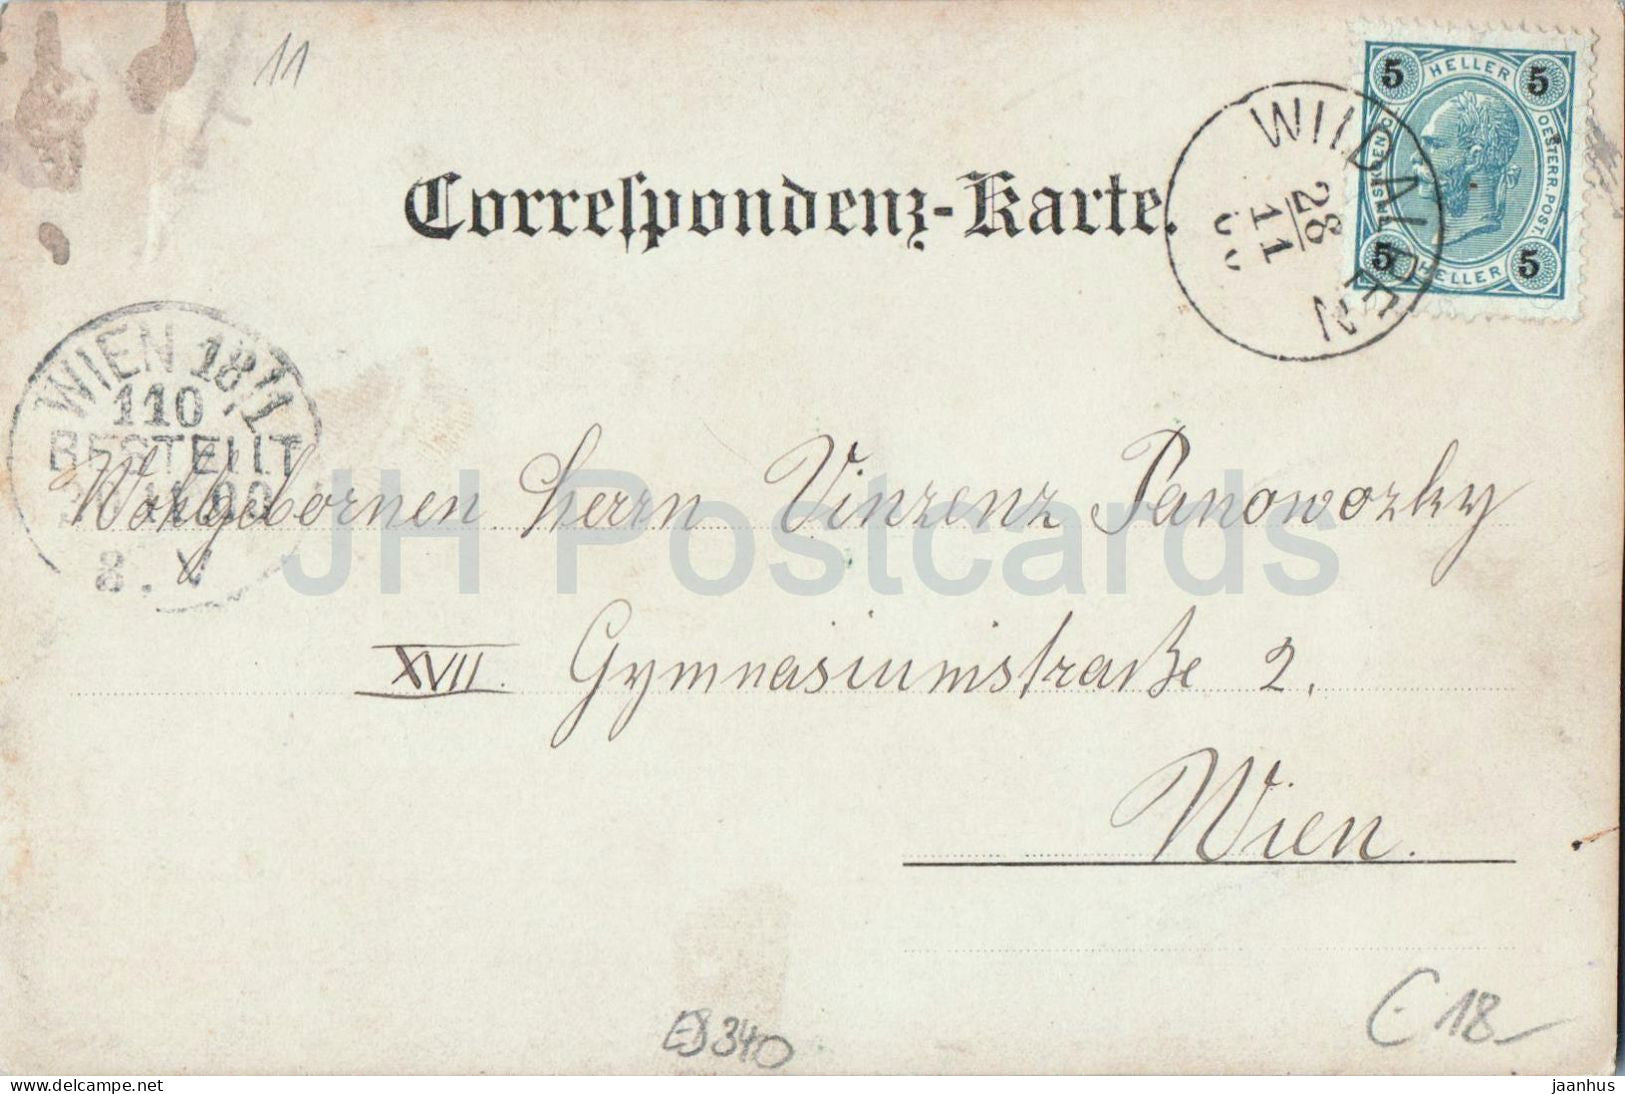 11
Correspondenz-Karte.
5 HELLER 5
OESTERR. POST.
5 HELLER 5
WILDALPEN
28
11
00
WIEN 18/1
110
BESTELLT
11 00
8. V
Wohlgebornen Herrn Vinzenz Panoworky
JH Postcards
XVII. Gymnasiumstraße 2.
Wien.
340
€ 18-
delcampe.net
jaanhus